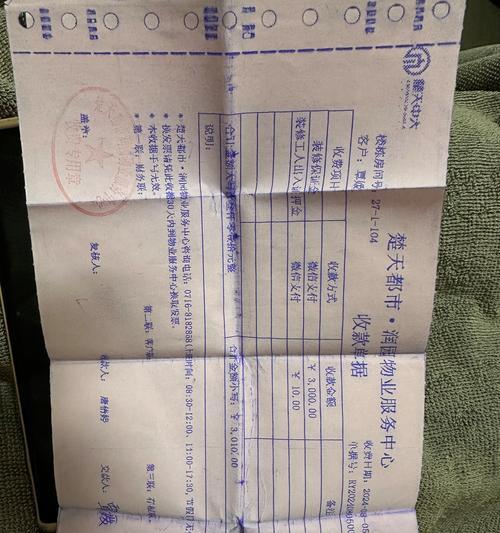 楚天都市
楚天都市·润园物业服务中心
收款单据
楼栋房间号: 27-1-104
收费日期: 2024-08-05
客户:
单据号: RY2024080500
收费项目 收款方式 收款金额 备注
装修保证金 微信支付 ¥ 3,000.00
装修工人出入证押金 微信支付 ¥ 10.00
合计金额大写: 叁仟零壹拾元整 合计金额小写: ¥ 3,010.00
说明:
* 楚天都市·润园物业服务中心咨询电话: 0716-8182888(上班时间: 08:30-12:00,
* 换发票请凭此收据30天内到物业服务中心换取发票。
* 本收据手写无效。
* 第一联: 财务联; 第二联: 客户联; 第三联:
盖章: 复核人: 收款人: 唐 交款人: